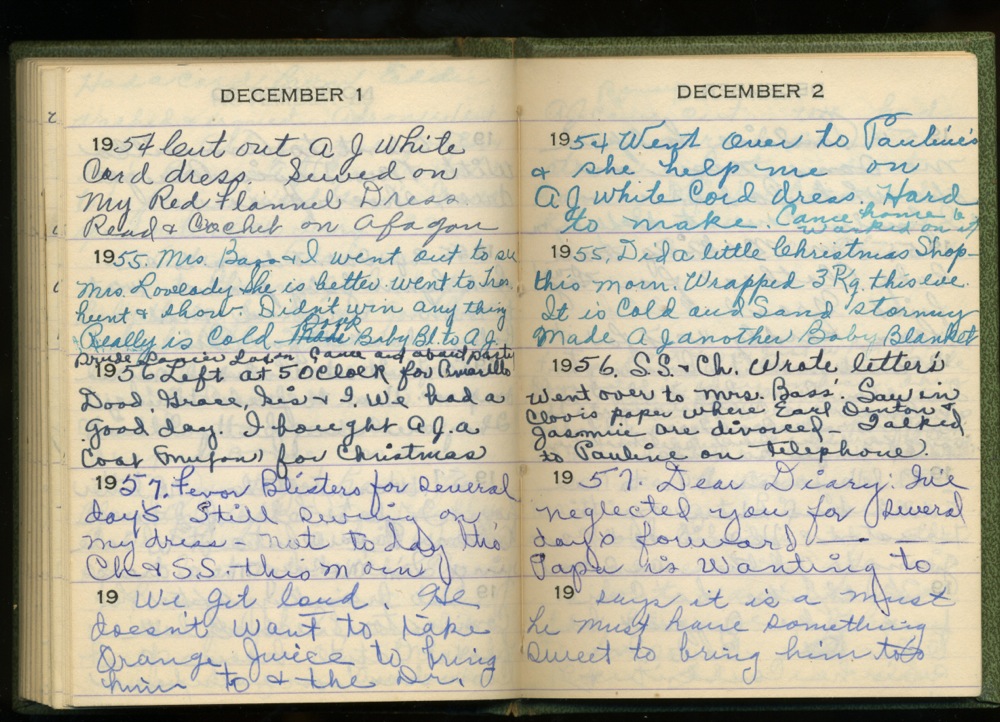 DECEMBER 1
1954 Cut out A J White
Cord dress. Sewed on
My Red Flannel Dress
Read & Cochet on Afagon
1955. Mrs. Bass & I went out to see
Mrs. Lovelady she is better. went to Tres.
heunt & show. Didn't win any thing
Really is Cold Made Baby Bl. to A.J.
Came and about party
1956 Left at 5 OClock for Amarillo
Dood, Grace, Sis & I. We had a
good day. I bought A.J. a
Coat (Muton) for Christmas
1957. Fevor Blisters for several
days Still sewing on
my dress - not today tho
Ch & S.S. this morn
19 We get loud. He
doesn't want to take
Orange Juice to bring
him to & the Dr.
DECEMBER 2
1954 Went over to Pauline's
& she help me on
A J White Cord dress. Hard
to make. Came home &
worked on it
1955. Did a little Christmas Shop-
this morn. Wrapped 3 Pkg. this eve.
It is Cold and Sand stormy
Made A J another Baby Blanket
1956. S.S. & Ch. Wrote letters
went over to Mrs. Bass'. Saw in
Clovis paper where Earl Denton &
Jasmine are divorced - Talked
to Pauline on telephone.
1957. Dear Diary: I've
neglected you for several
days forward — —
Papa is wanting to
19 says it is a must
he must have something
sweet to bring him to